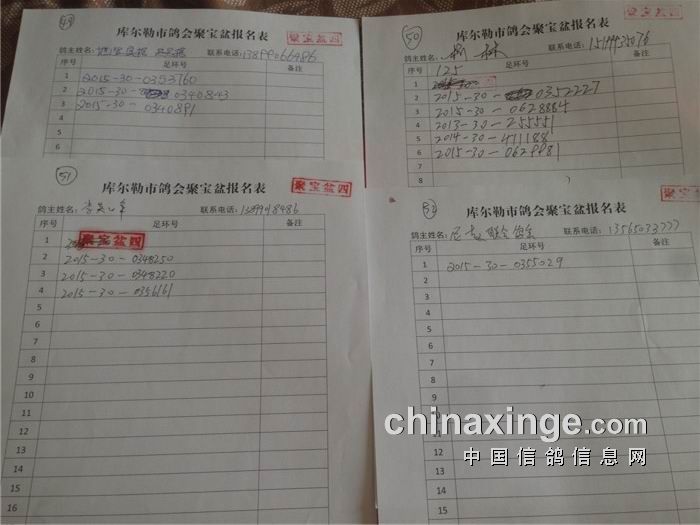 49
库尔勒市鸽会聚宝盆报名表
聚宝盆四
鸽主姓名:
联系电话: 13899066486
序号 足环号 备注
1 2015-30-0353760
2 2015-30- 0340843
3 2015-30- 0340891
4
5
6
50
库尔勒市鸽会聚宝盆报名表
聚宝盆四
鸽主姓名: 林
联系电话:
序号 足环号 备注
125
1
2 2015-30- 0352227
3 2015-30-0628884
4 2013-30-255551
5 2014-30-411188
6 2015-30-0629981
7
8
51
库尔勒市鸽会聚宝盆报名表
聚宝盆四
鸽主姓名: 李
联系电话: 13899418486
序号 足环号 备注
1 聚宝盆四
2 2015-30-0348250
3 2015-30-0348220
4 2015-30-0356161
5
6
7
8
9
10
11
12
13
14
15
16
库尔勒市鸽会聚宝盆报名表
聚宝盆四
鸽主姓名: 联合鸽舍
联系电话: 13565033777
序号 足环号 备注
1 2015-30-0355029
2
3
4
5
6
7
8
9
10
11
12
13
14
15
chinaxinge.com
中国信鸽信息网